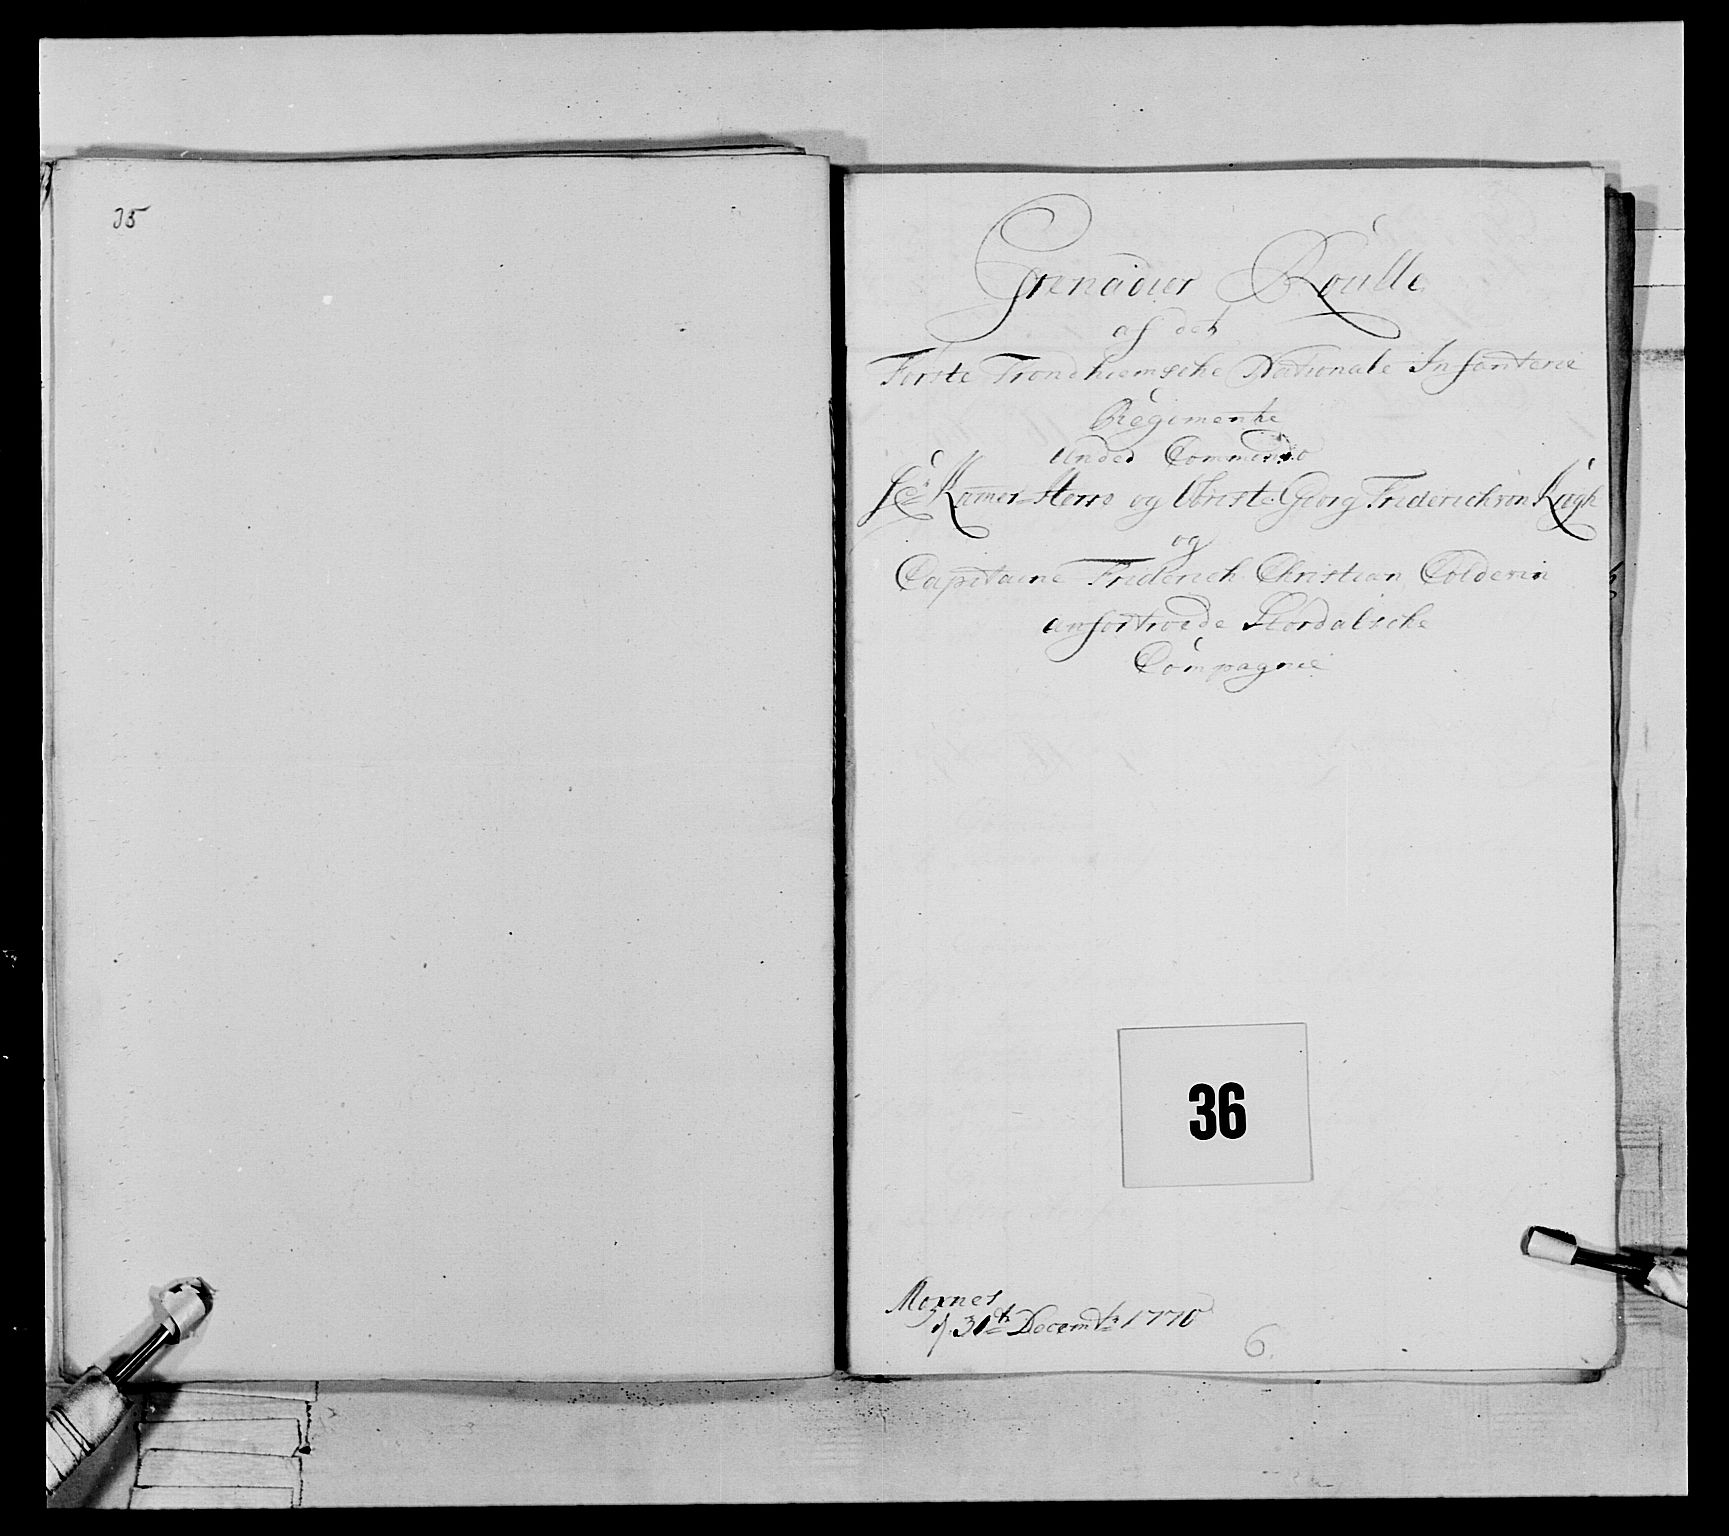 35
Grenadier Roulle
af det
Første Trondhiemsche Nationale Infanterie
Regimente
Under Commando
Hr Kamer-Herre og Obriste Georg Friderich von Krogh
og
Capitaine Friderich Christian Colderin
anfortroede Stordalsche
Compagnie
36
Moxnes
d. 31te Decembr 1770
6.